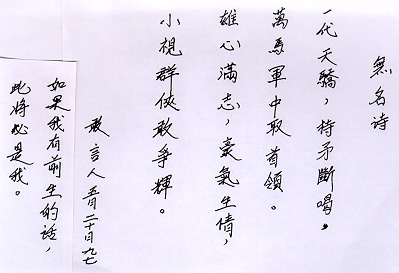 無名诗
一代天驕，持矛斷喝，
萬馬軍中取首領。
雄心滿志，豪氣生情，
小視群俠敢爭輝。
敢言人五月二十日九七
如果我有前生的话，
此将必是我。